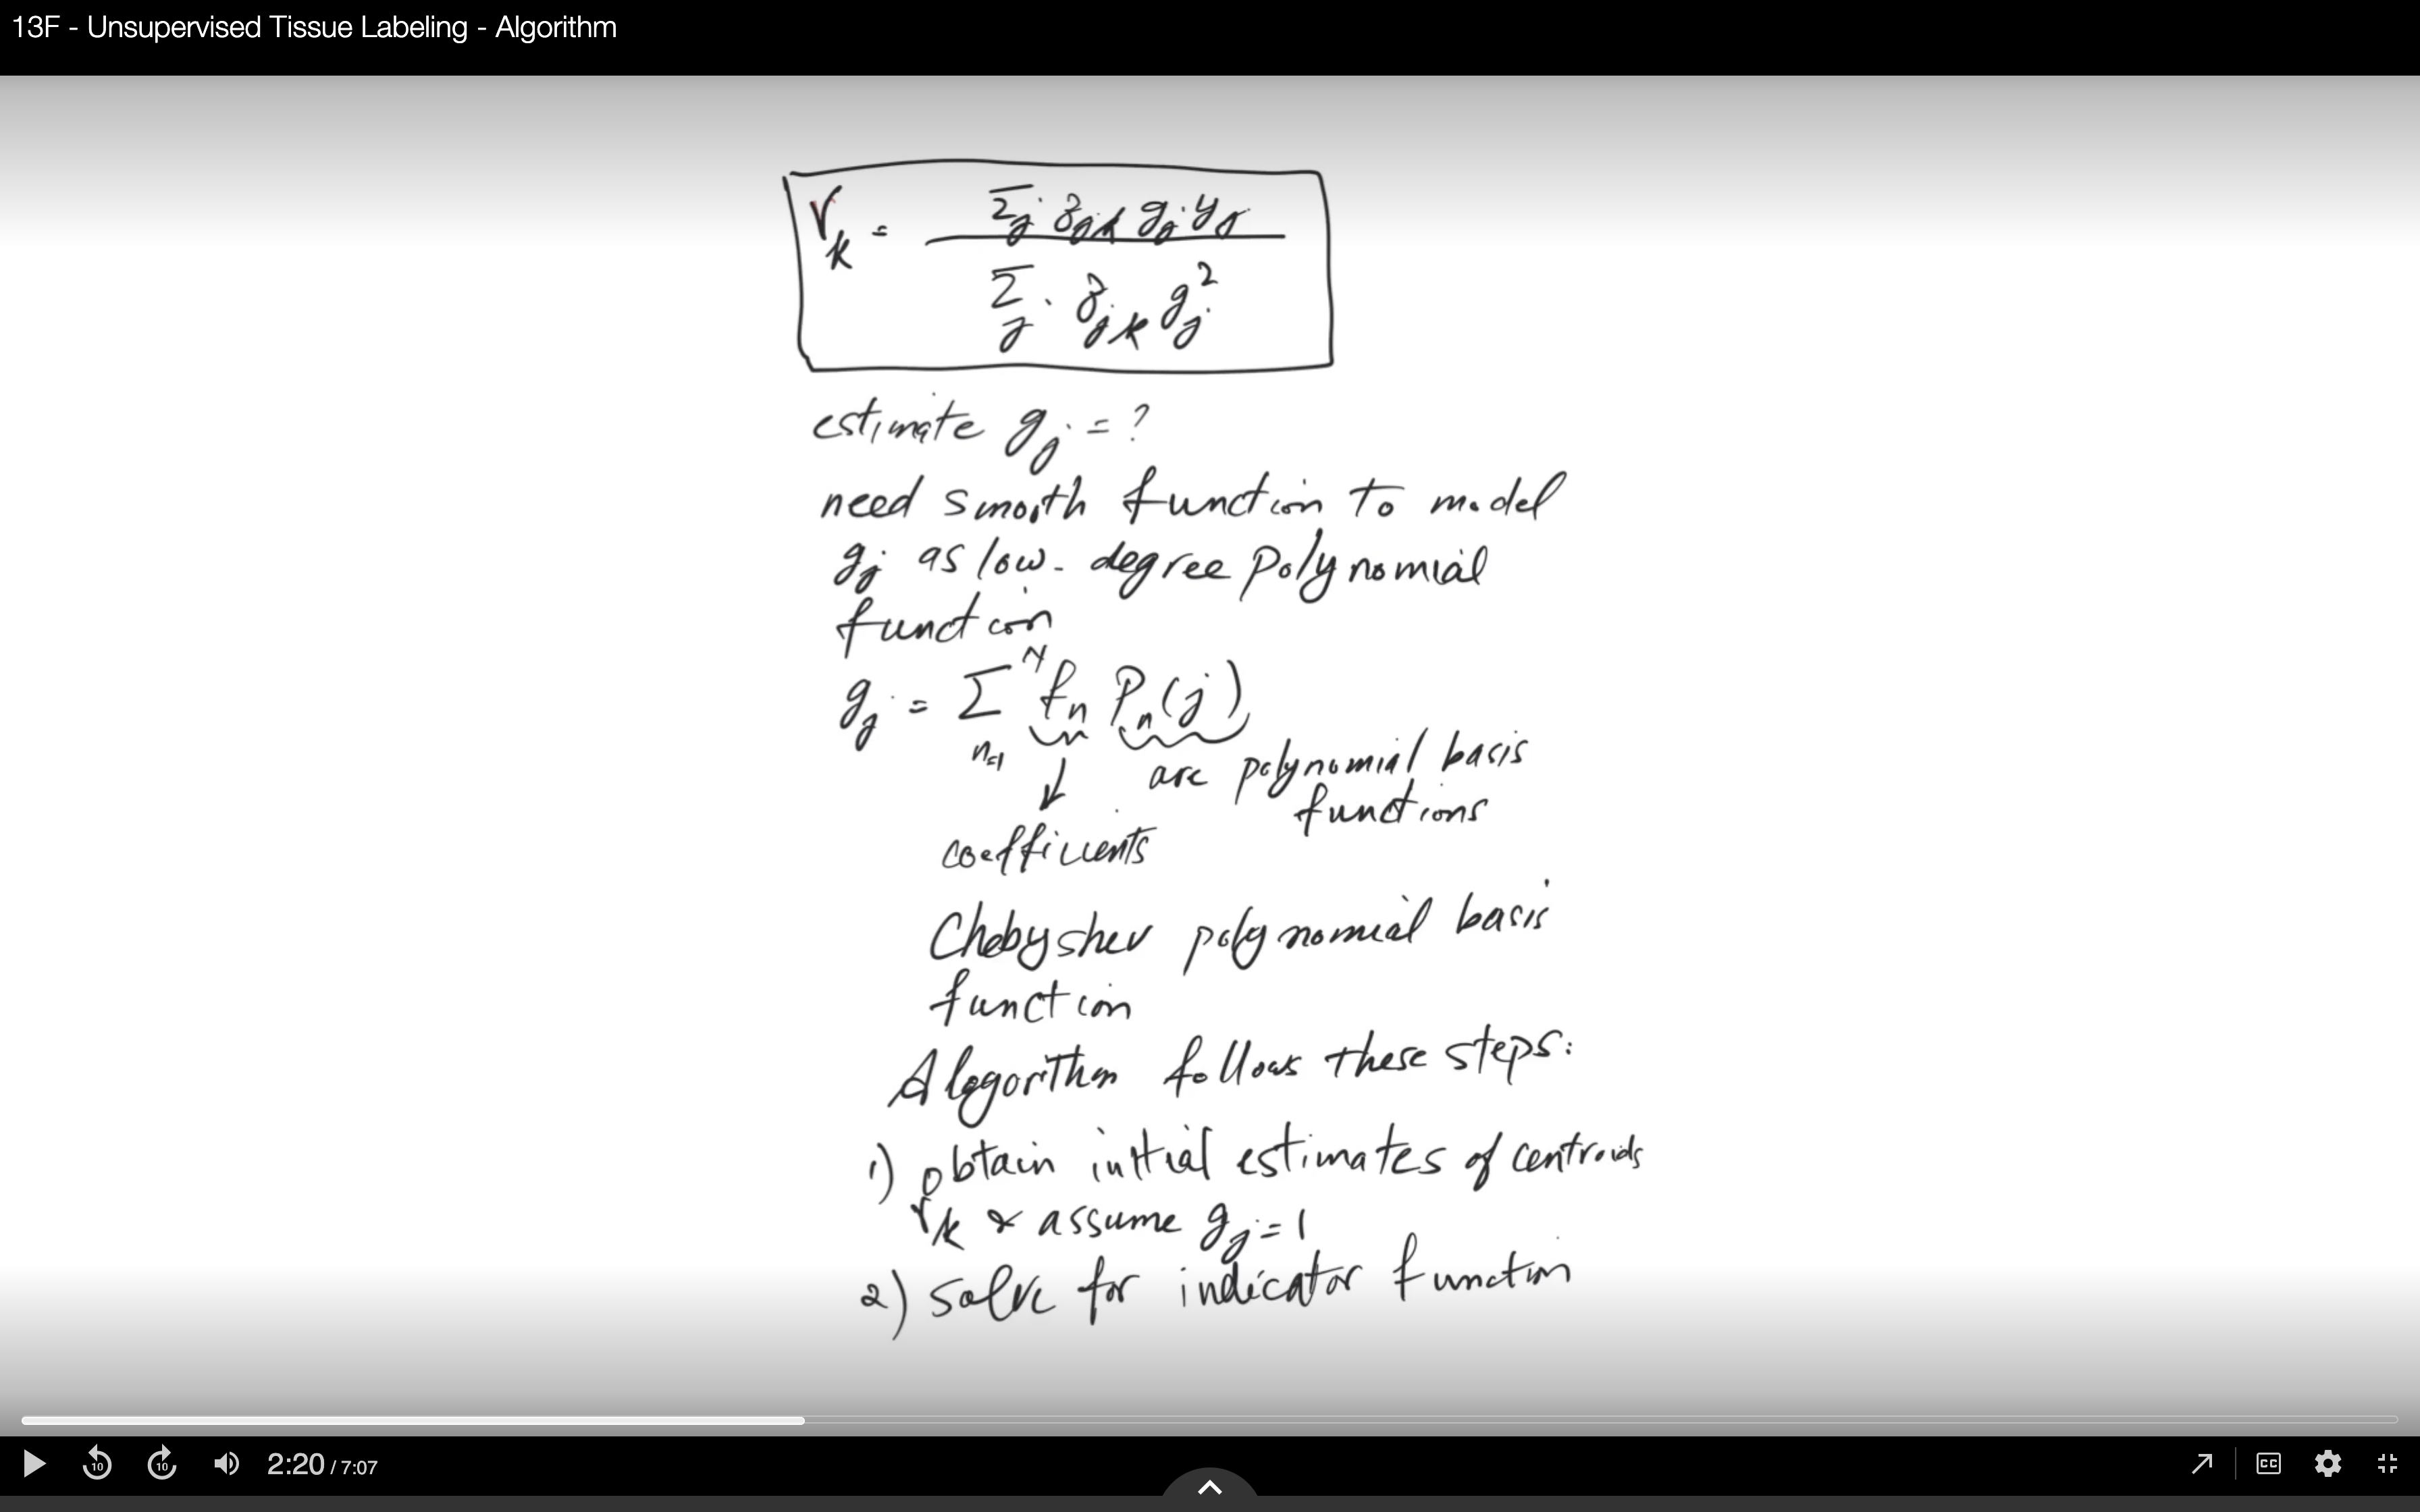 13F - Unsupervised Tissue Labeling - Algorithm
r_k = Σ_j z_jk g_j y_j / Σ_j z_jk g_j^2
estimate g_j = ?
need smooth function to model
g_j as low-degree polynomial
function
g_j = Σ_{n=1}^{N} f_n P_n(j)
are polynomial basis
functions
coefficients
Chebyshev polynomial basis
function
Algorithm follows these steps:
1) obtain initial estimates of centroids
r_k & assume g_j = 1
2) solve for indicator function
10 10 2:20 / 7:07 CC